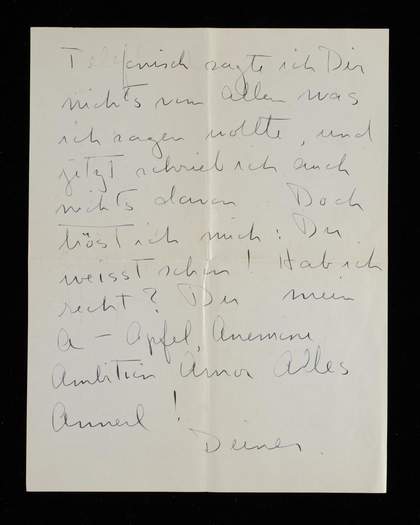 Telefonisch sagte ich Dir
nichts von allem was
ich sagen wollte, und
jetzt schrieb ich auch
nichts davon. Doch
tröst ich mich: Du
weisst schon! Hab ich
recht? Du mein
A - Apfel, Anemone
Ambition Amor Alles
Annerl!
Deiner.